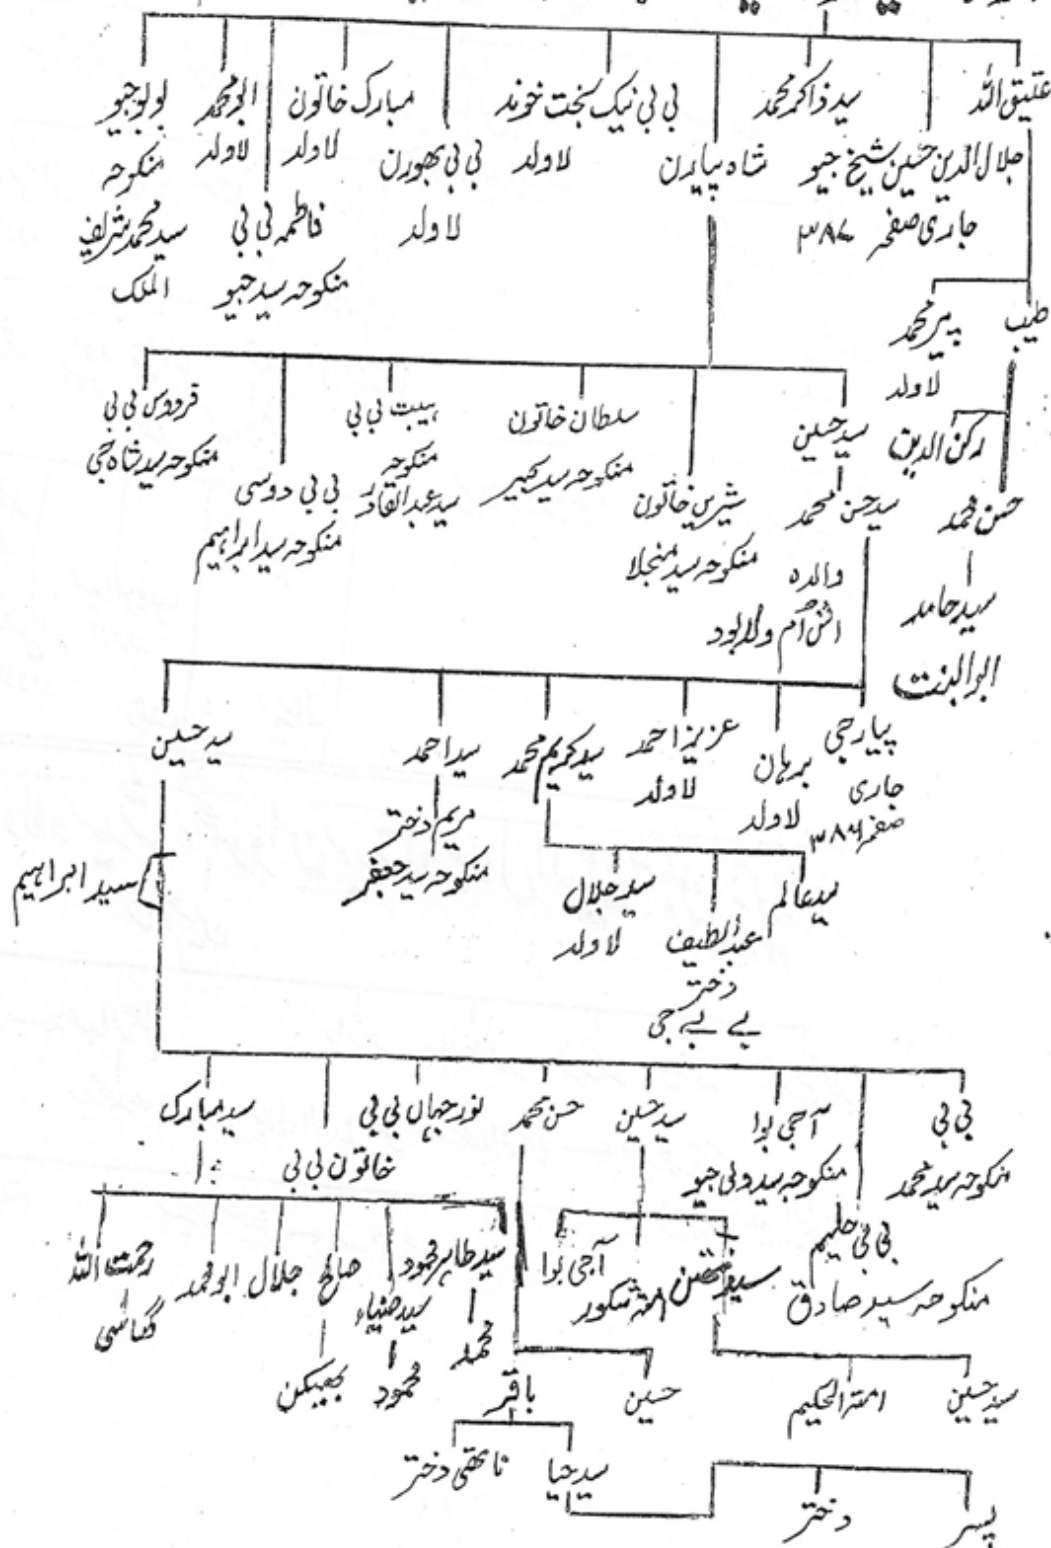 عتیق اللہ
سید ذاکر محمد
بی بی نیک بخت خوند
لاولد
مبارک خاتون
لاولد
ابو محمد
لاولد
بو بو جیو
منکوحہ
سید محمد شریف
الملک
جلال الدین حسین شیخ جیو
جاری صفحہ ۳۸۷
شاہ پیارن
بی بی بھورن
لاولد
فاطمہ بی بی
منکوحہ سید جیو
طیب
پیر محمد
لاولد
رکن الدین
حسن محمد
سید حامد
ابو البنت
سید حسین
سید حسن محمد
والدہ
شیرین خاتون
منکوحہ سید منجلا
سلطان خاتون
منکوحہ سید کبیر
ہیبت بی بی
منکوحہ
سید عبد القادر
بی بی دوسی
منکوحہ سید ابراہیم
فردوس بی بی
منکوحہ سید شاہ جی
پیار جی
جاری
صفحہ ۳۸۴
برہان
لاولد
عزیز احمد
لاولد
سید کریم محمد
سید احمد
مریم دختر
منکوحہ سید جعفر
سید حسین
سید ابراہیم
سید عالم
عبد الطیف
دختر
بے بے جی
سید جلال
لاولد
بی بی
منکوحہ سید محمد
بی بی حلیم
منکوحہ سید صادق
آجی بوا
منکوحہ سید ولی جیو
سید حسین
حسن محمد
نور جہاں بی بی
خاتون بی بی
سید مبارک
آجی بوا
امتہ شکور
سید طاہر محمود
محمد
سید ضیاء
محمود
صالح
بھیکن
جلال
ابو محمد
رحمت اللہ
گھاسی
سید حسین
امتہ الحکیم
حسین
باقر
سید حیا
ناتھی دختر
پسر
دختر